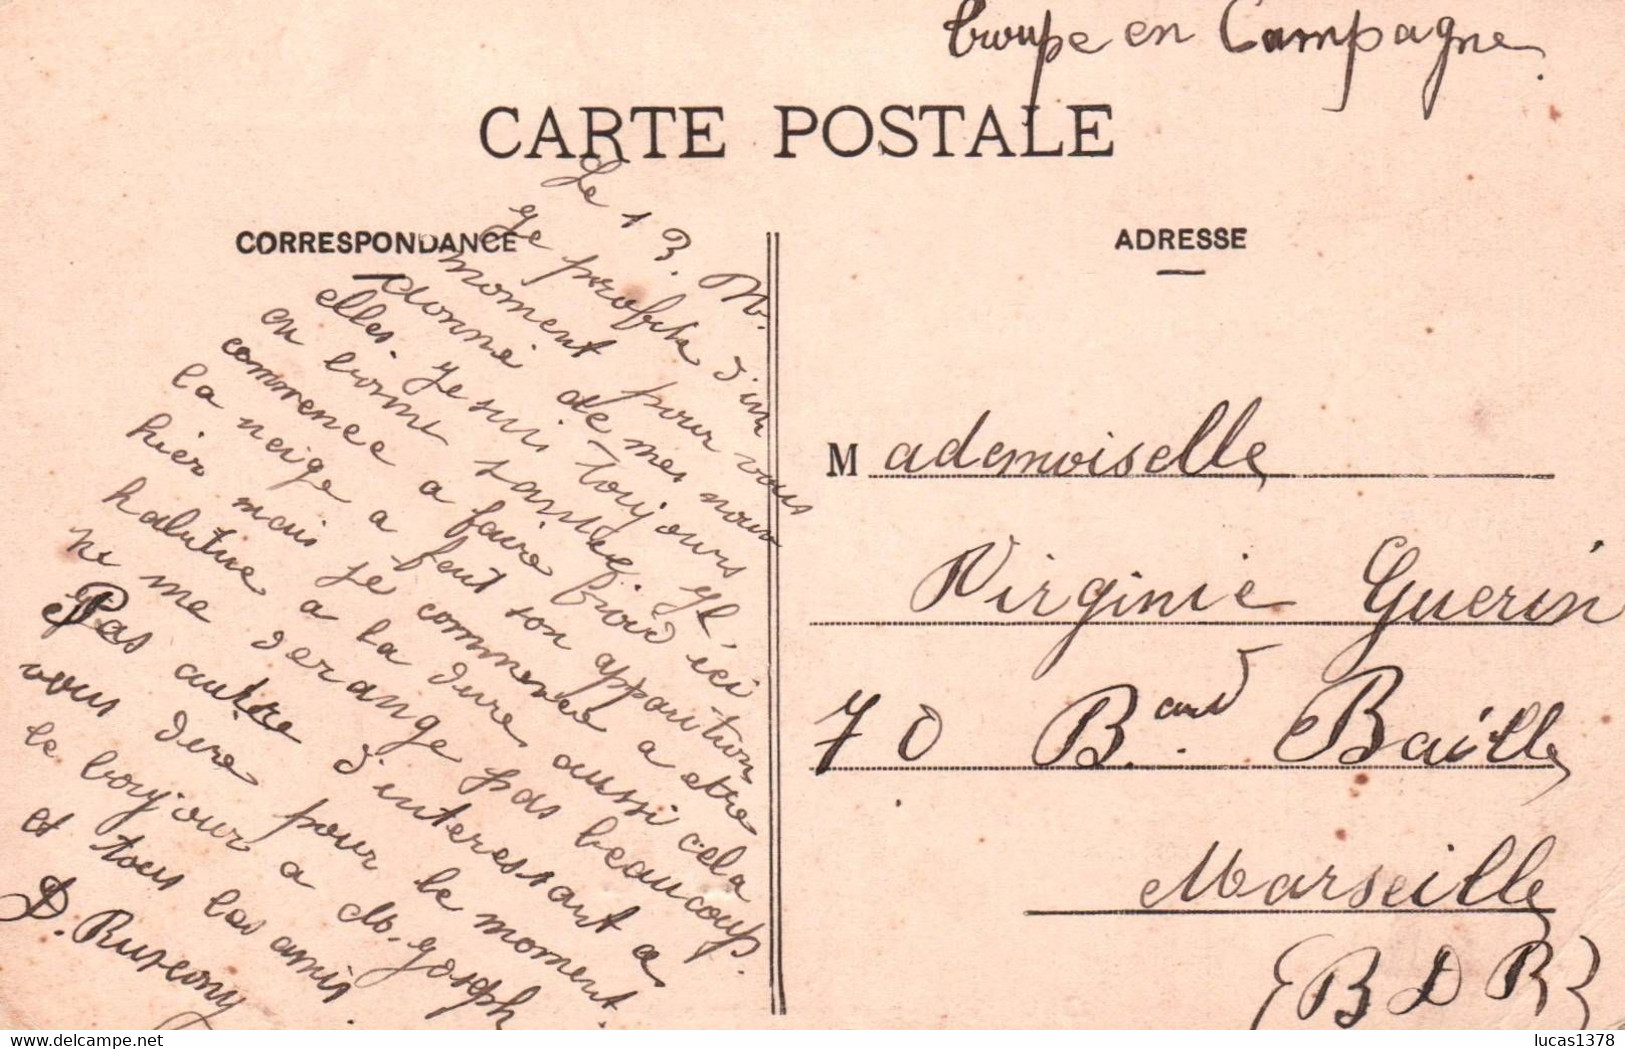 troupe en Campagne.
CARTE POSTALE
CORRESPONDANCE
ADRESSE
Le 13. M.
Je profite d'un
moment pour vous
donné de mes nouv
elles je suis toujours
en bonne santée yl
commence a faire froid ici
la neige a fait son apparition
hier mais je commence a etre
habitue a la dure aussi cela
ne me derange pas beaucoup.
Pas autre d'interessant a
vous dire pour le moment.
le boujour a M. Joseph
et tous les amis
D. Rusconny
Mademoiselle
Virginie Guerin
70 Bard Baille
Marseille
(B D R)
delcampe.net
lucas1378